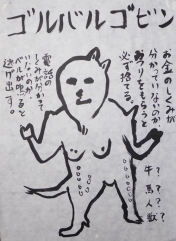 ゴルバルゴビン
お金のしくみが
分かっていないのか
おつりをもらうと
必ず捨てる。
電話の
しくみが分かって
いないのか、
ベルが鳴ると
逃げ出す。
牛?
馬?
人?
獣?